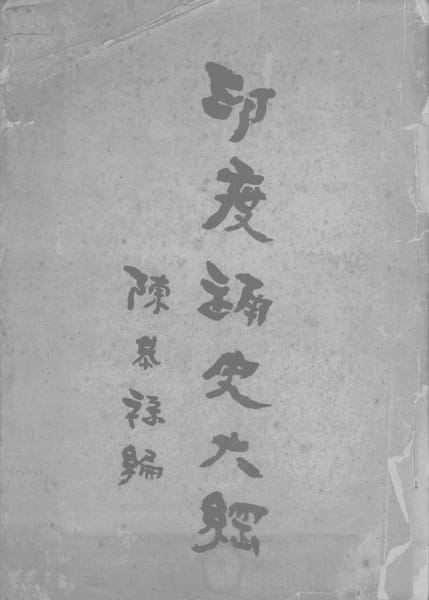 印度通史大綱
陳恭祿編